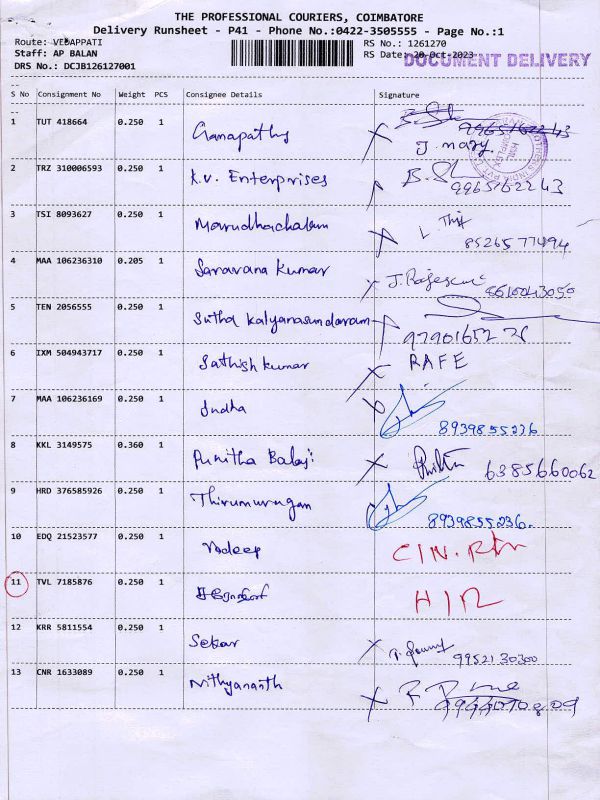 THE PROFESSIONAL COURIERS, COIMBATORE
Delivery Runsheet - P41 - Phone No.:0422-3505555 - Page No.:1
Route: VEDAPPATI
RS No.: 1261270
Staff: AP BALAN
RS Date: 20-Oct-2023
DOCUMENT DELIVERY
DRS No.: DCJB126127001
S No Consignment No Weight PCS Consignee Details Signature
1 TUT 418664 0.250 1 Ganapathy J. mary.
2 TRZ 310006593 0.250 1 K.V. Enterprises 9965162243
3 TSI 8093627 0.250 1 Marudhachalam 8526577494
4 MAA 106236310 0.205 1 Saravana Kumar 8610043050
5 TEN 2056555 0.250 1 Sutha Kalyanasundaram
6 IXM 504943717 0.250 1 Sathish kumar RAFE
7 MAA 106236169 0.250 1 Sudha 8939855236
8 KKL 3149575 0.360 1 Punitha Balaji 6385660062
9 HRD 376585926 0.250 1 Thirumurugan 8939855236.
10 EDQ 21523577 0.250 1
11 TVL 7185876 0.250 1
12 KRR 5811554 0.250 1 Sekar 9952130300
13 CNR 1633089 0.250 1 Nithyananth